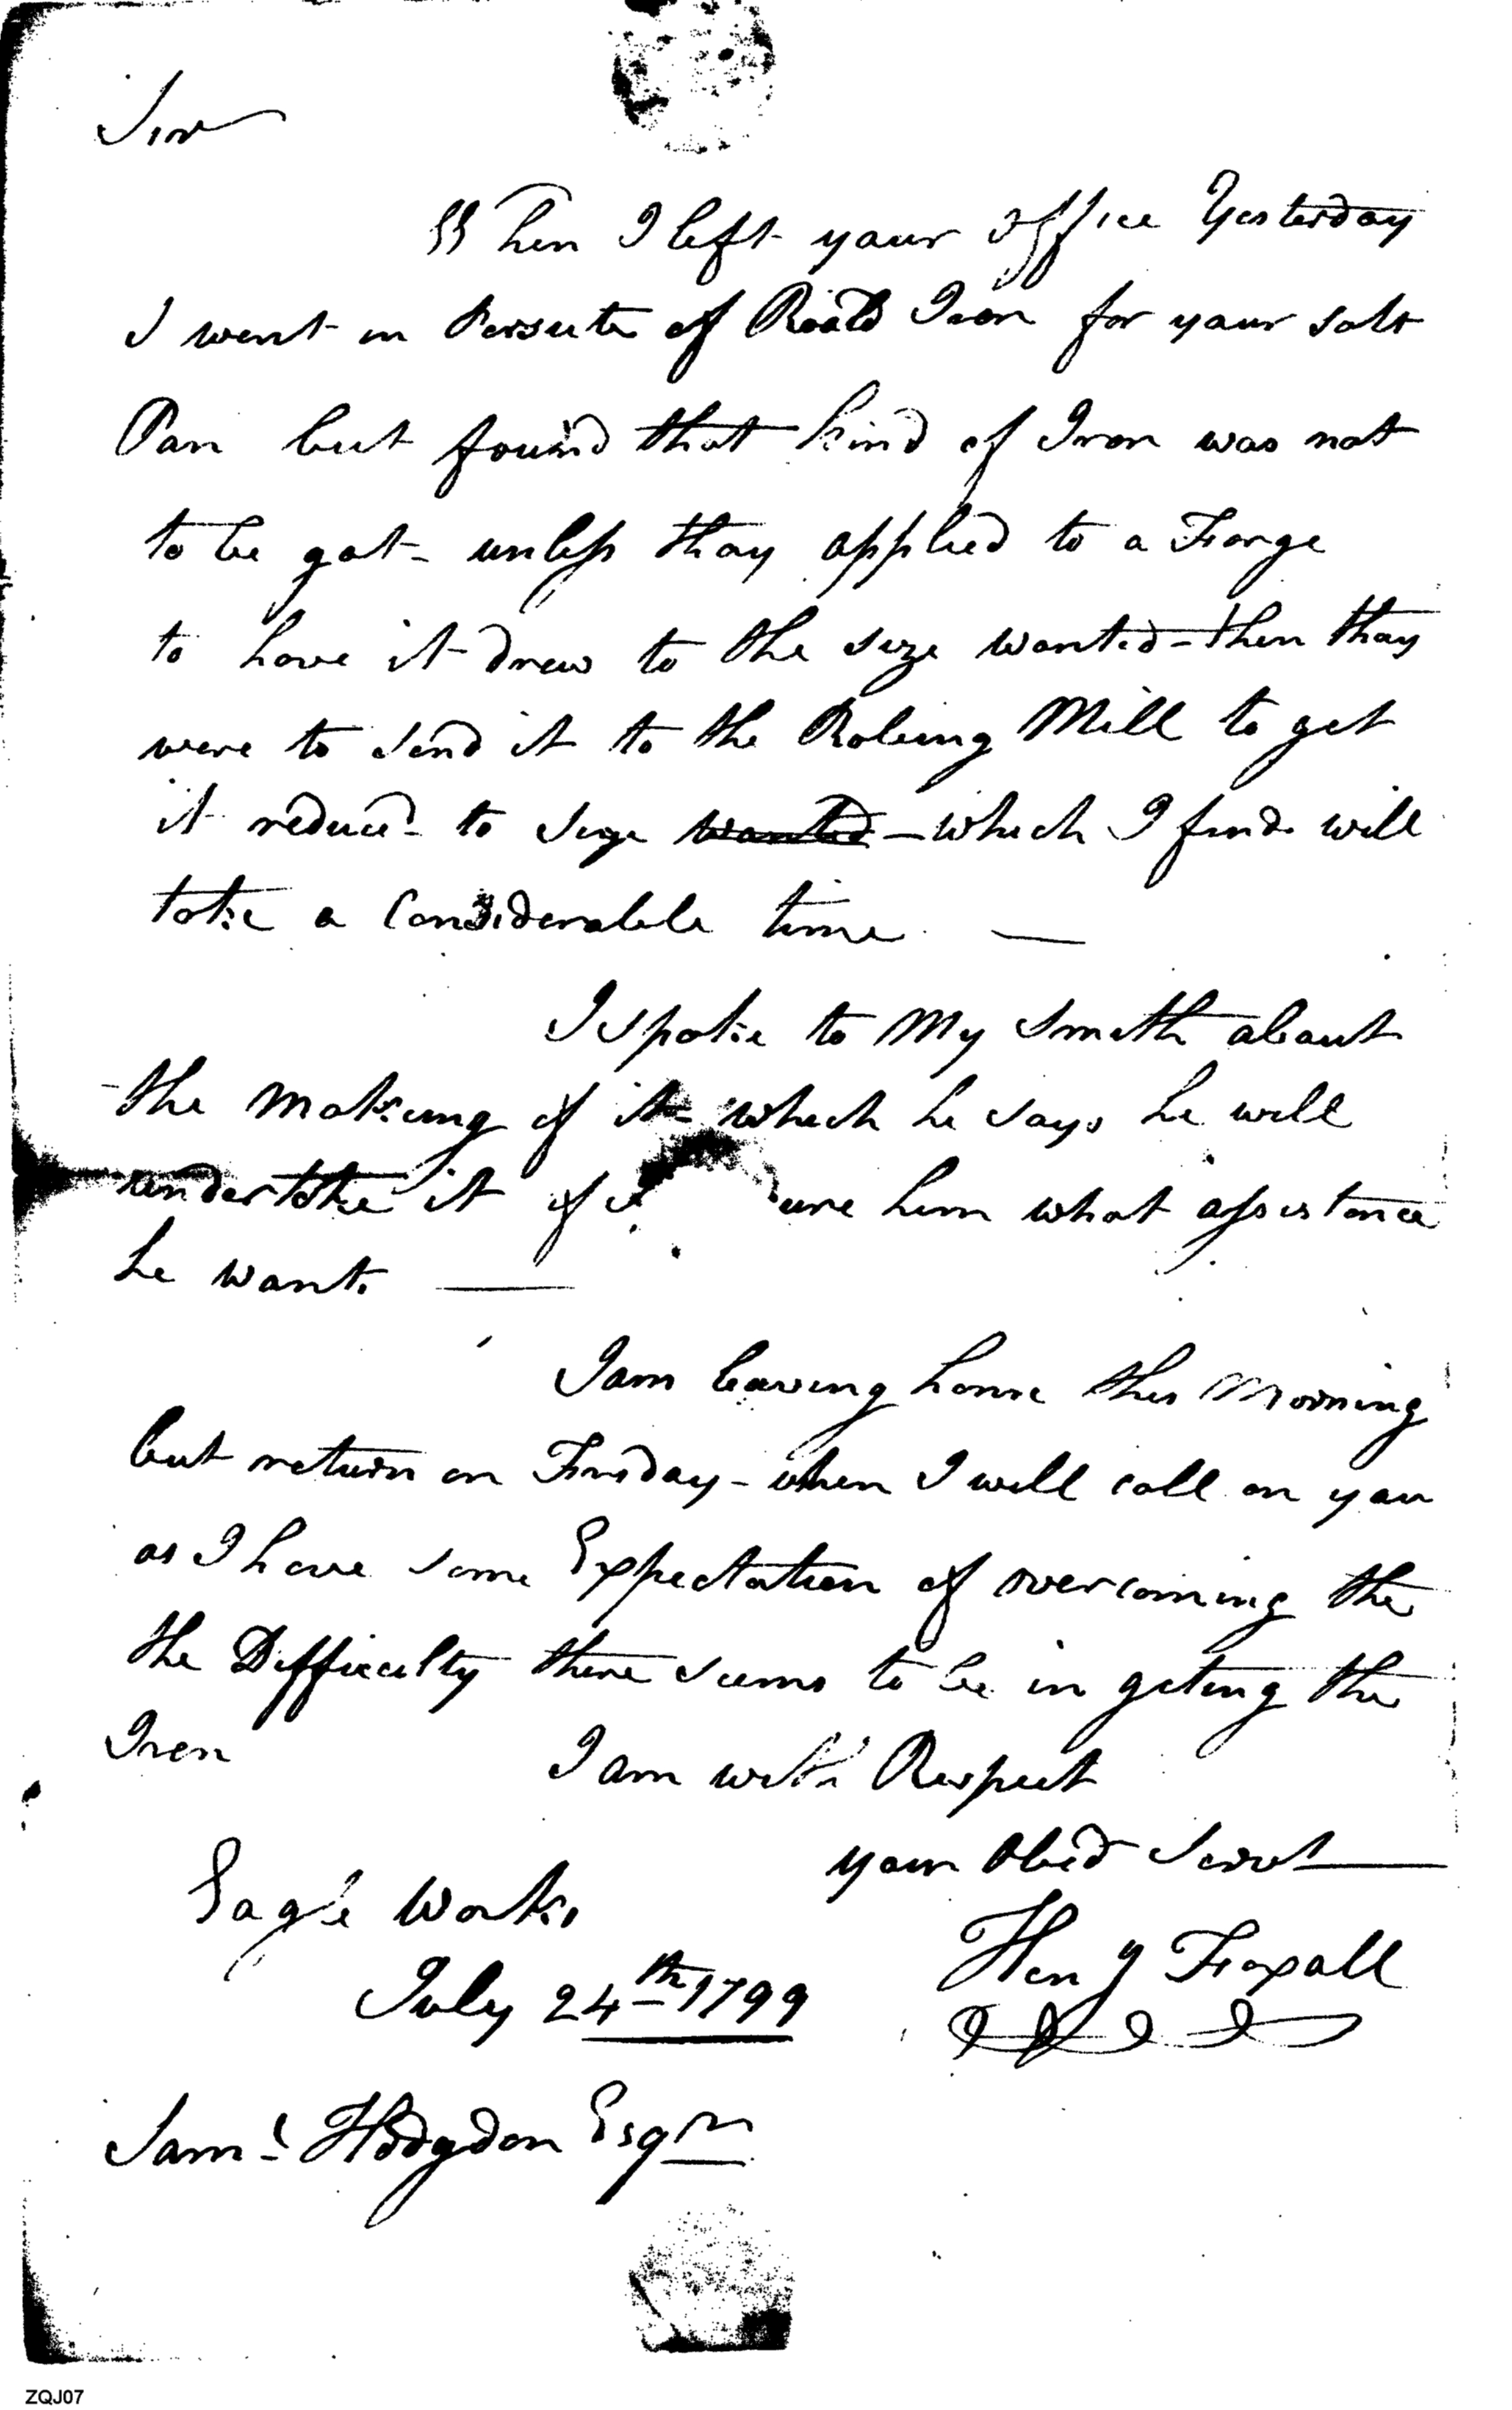 Sir
When I left your office Yesterday
I went in Persute of Iron for your salt
Pan but found that kind of Iron was not
to be got - unless thay applied to a Forge
to have it drew to the size wanted - then thay
were to send it to the Roleing Mill to get
it reduc'd to size wanted - which I find will
take a Considerable time. —
I spoke to My Smith about
the Makeing of it - which he says he will
undertake it if him what assistance
he wants —
I am leaving home this Morning
but return on Friday - when I will call on you
as I have some Expectation of overcoming the
the Difficulty there seems to be in geting the
Iron I am with Respect
your Obed Servt —
Eagle Works
Heny Foxall
July 24th 1799
Saml Hodgdon Esqr
ZQJ07